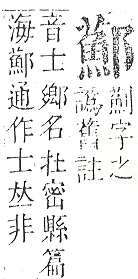 薊字之
譌舊註
音士鄉名在密縣篇
海通作士𠀤非